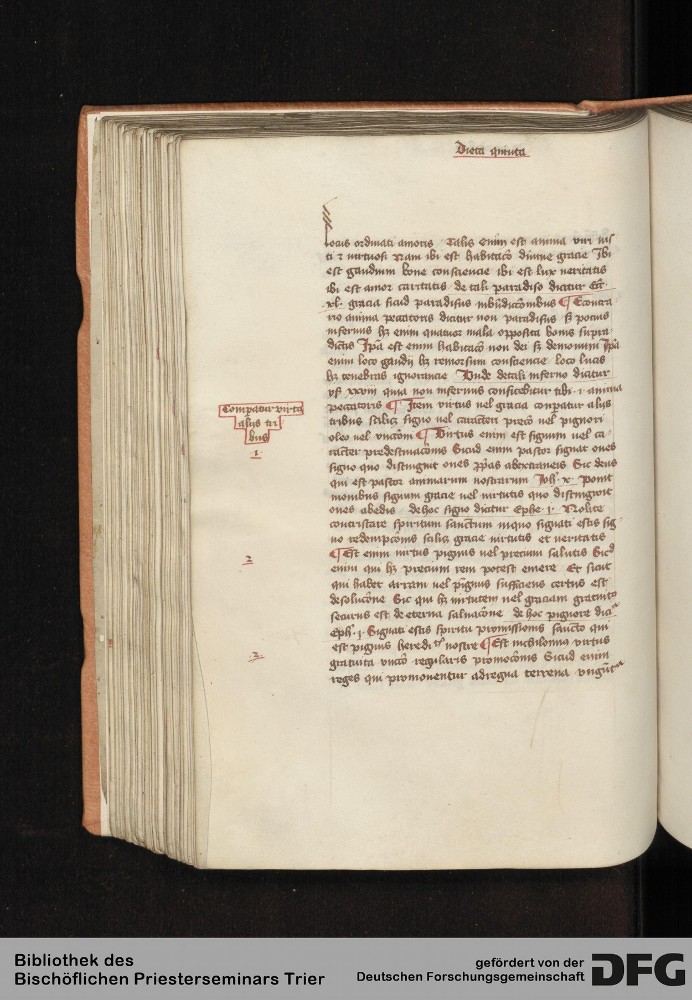 Dieta quinta
loris ordinati amoris Talis enim est anima viri ius
ti ⁊ virtuosi Nam ibi est habitacō diuine gracie Ibi
est gaudium bone consciencie ibi est lux veritatis
ibi est amor caritatis de tali paradiso dicitur Ecc̄.
xl. gracia sicud paradisus in bn̄dicōmibus ¶ Econtra
rio anima peccatoris dicitur non paradisus sꝫ pocius
infernus hꝫ enim quatuor mala opposita bonis supra
dictis Ip̄a est enim habitacō non dei sꝫ demonum Ip̄a
enim loco gaudij hꝫ remorsum consciencie loco lucis
hꝫ tenebras ignorancie Vnde de tali inferno dicitur
ys̄ xxxviij quia non infernus confitebitur tibi .i. anima
peccatoris ¶ Item virtus vel gracia conpatur alijs
tribus scilicꝫ signo vel caracteri precō vel pignori
oleo vel vnctōni ¶ Virtus enim est signum vel ca
racter predestinacōnis Sicud enim pastor signat oues
signo quo distinguit oues pp̄as ab extraneis Sic deus
qui est pastor animarum nostrarum Joh̄. x. ponit
in ouibus signum gracie vel virtutis quo distinguit
oues ab edis de hoc signo dicitur Ephe. i. Nolite
contristare spiritum sanctum in quo signati estis sig
no redempcōnis scilicꝫ gracie virtutis et veritatis
¶ Est enim virtus pignus vel precium salutis Sicd
enim qui hꝫ precium rem potest emere Et sicut
qui habet arram vel pignus sufficiens certus est
de solucōne Sic qui hꝫ virtutem vel graciam gratuito
securus est de eterna saluacōne de hoc pignore dicit
Eph. i. Signati estis spiritu promissionis sancto qui
est pignus heredit nostre ¶ Est nichilominus virtus
gratuita vnctō regularis promocōnis Sicud enim
reges qui promouentur ad regna terrena vngūt
Compatur virtꝯ
alijs tri
bus
1
2
3
Bibliothek des
Bischöflichen Priesterseminars Trier
gefördert von der
Deutschen Forschungsgemeinschaft
DFG